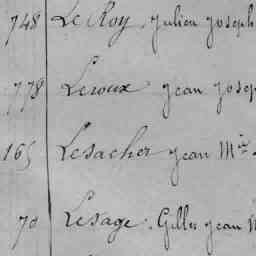 748 Le Roy, Julien Joseph
778 Leroux Jean Josep
165 Lesacher Jean Mie
70 Lesage, Gilles Jean